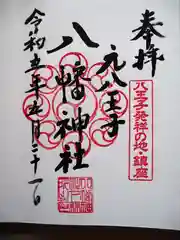 奉拝
八王子発祥の地・鎮座
元八王子
八幡神社
令和五年七月二十一日